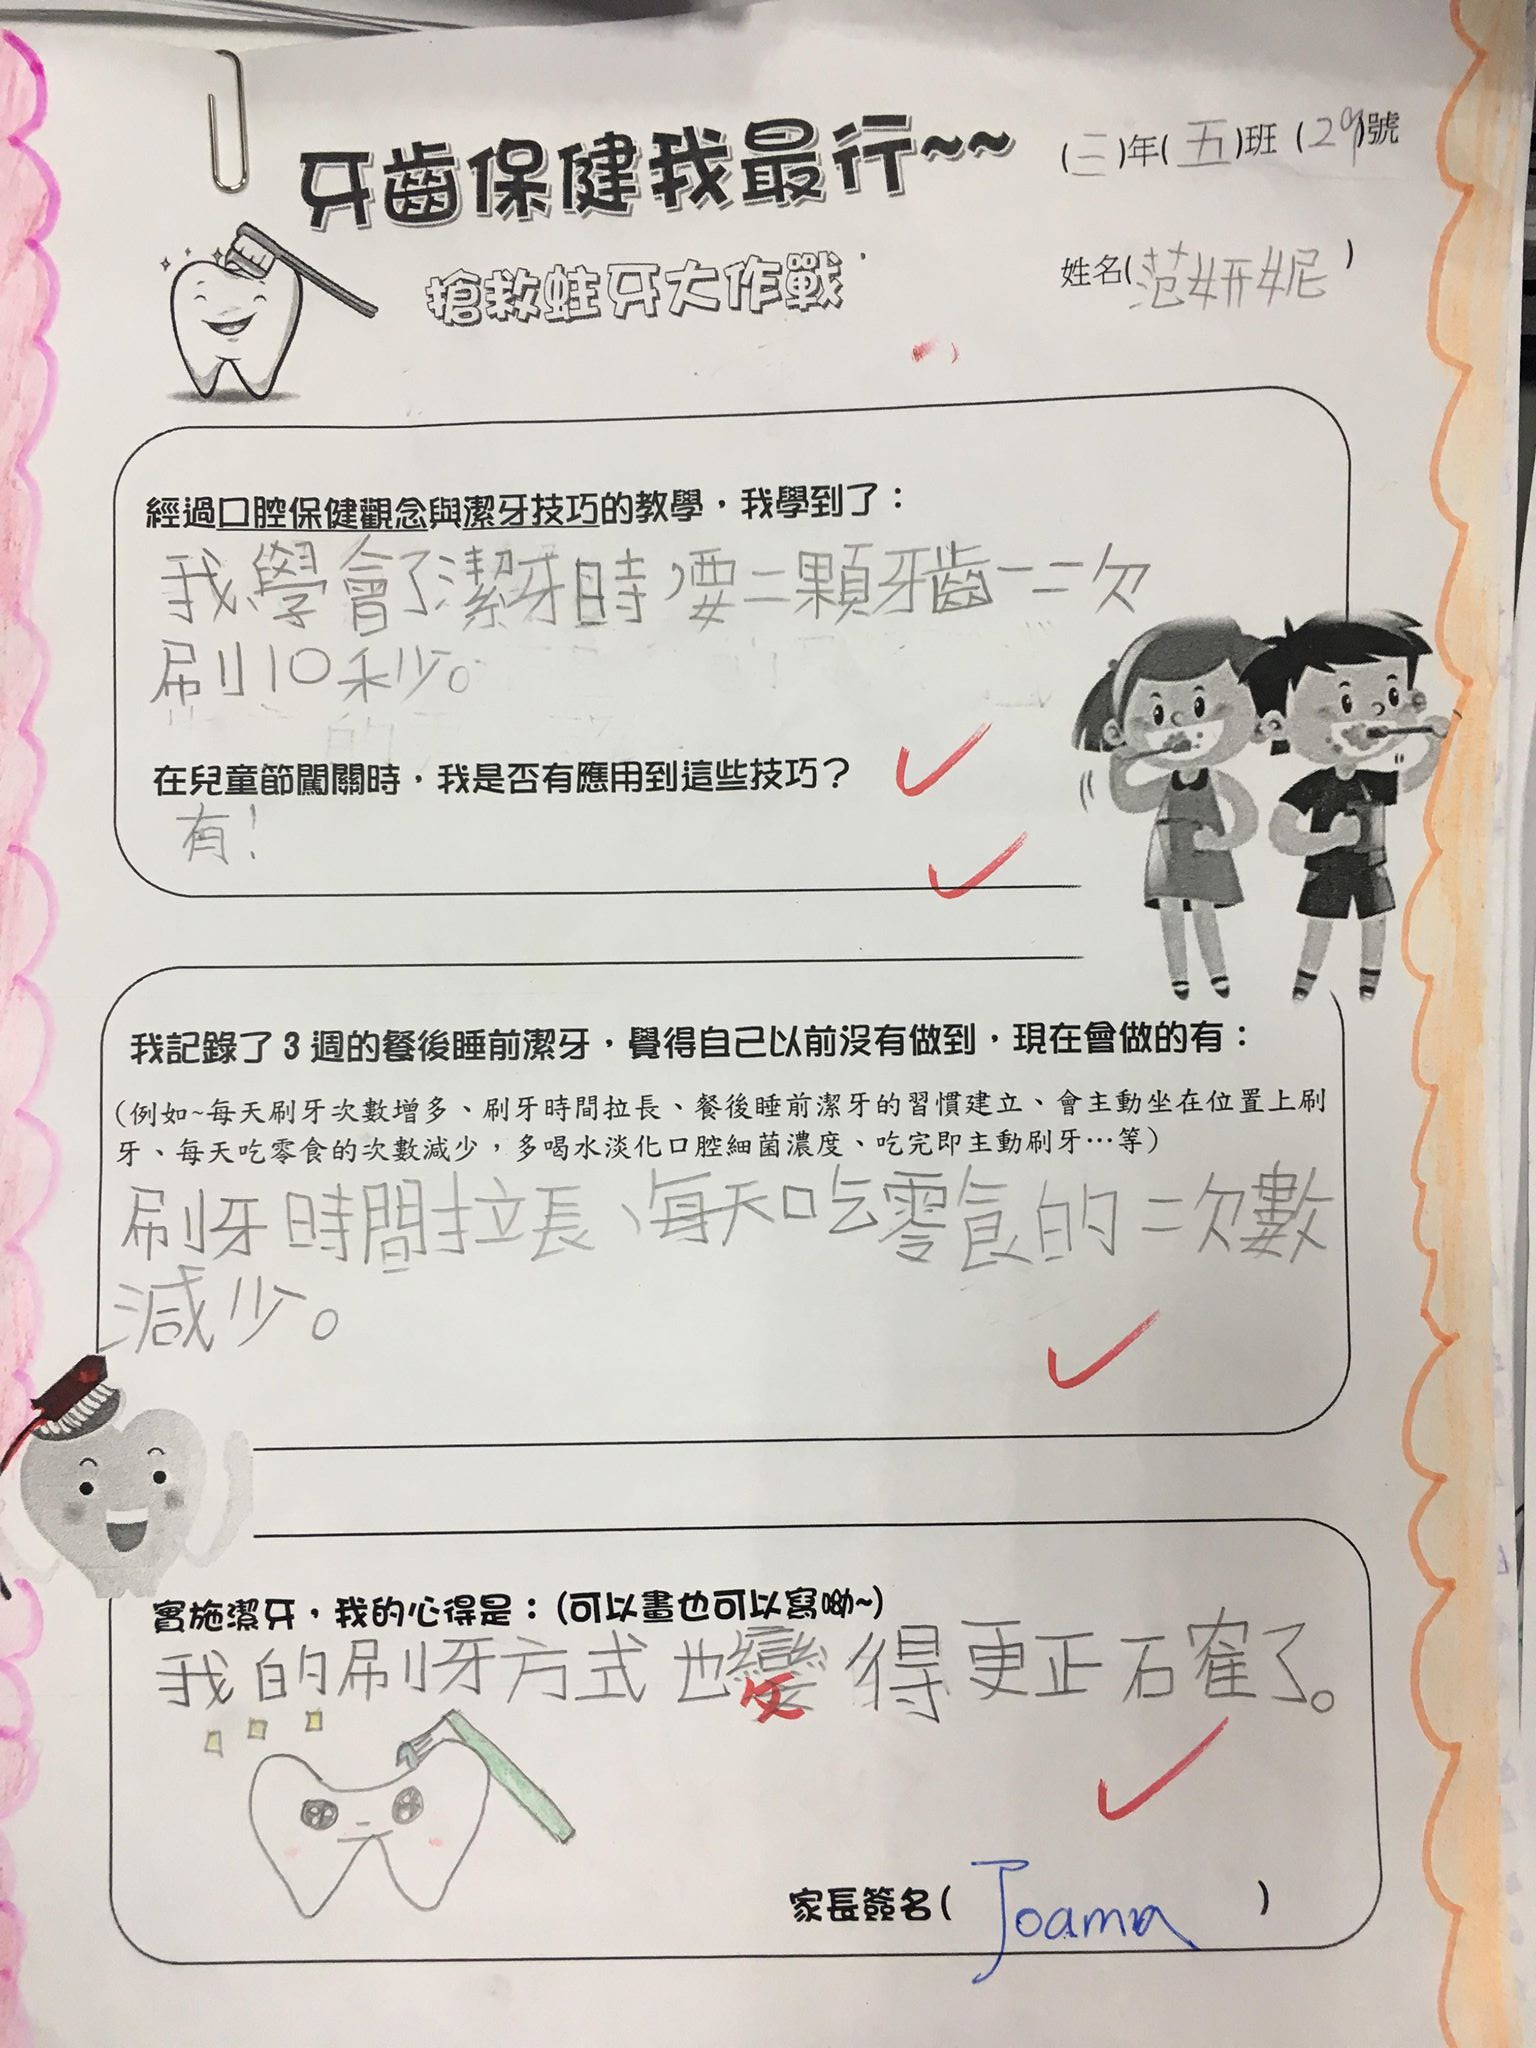 牙齒保健我最行~~
(三)年(五)班(29)號
搶救蛀牙大作戰
姓名(范妍妮)
經過口腔保健觀念與潔牙技巧的教學，我學到了：
我學會了潔牙時，要二顆牙齒一次
刷10秒。
在兒童節闖關時，我是否有應用到這些技巧？
有！
我記錄了3週的餐後睡前潔牙，覺得自己以前沒有做到，現在會做的有：
(例如~每天刷牙次數增多、刷牙時間拉長、餐後睡前潔牙的習慣建立、會主動坐在位置上刷
牙、每天吃零食的次數減少，多喝水淡化口腔細菌濃度、吃完即主動刷牙…等)
刷牙時間拉長、每天吃零食的次數
減少。
實施潔牙，我的心得是：(可以畫也可以寫呦~)
我的刷牙方式也變得更正確了。
家長簽名( Joanna )